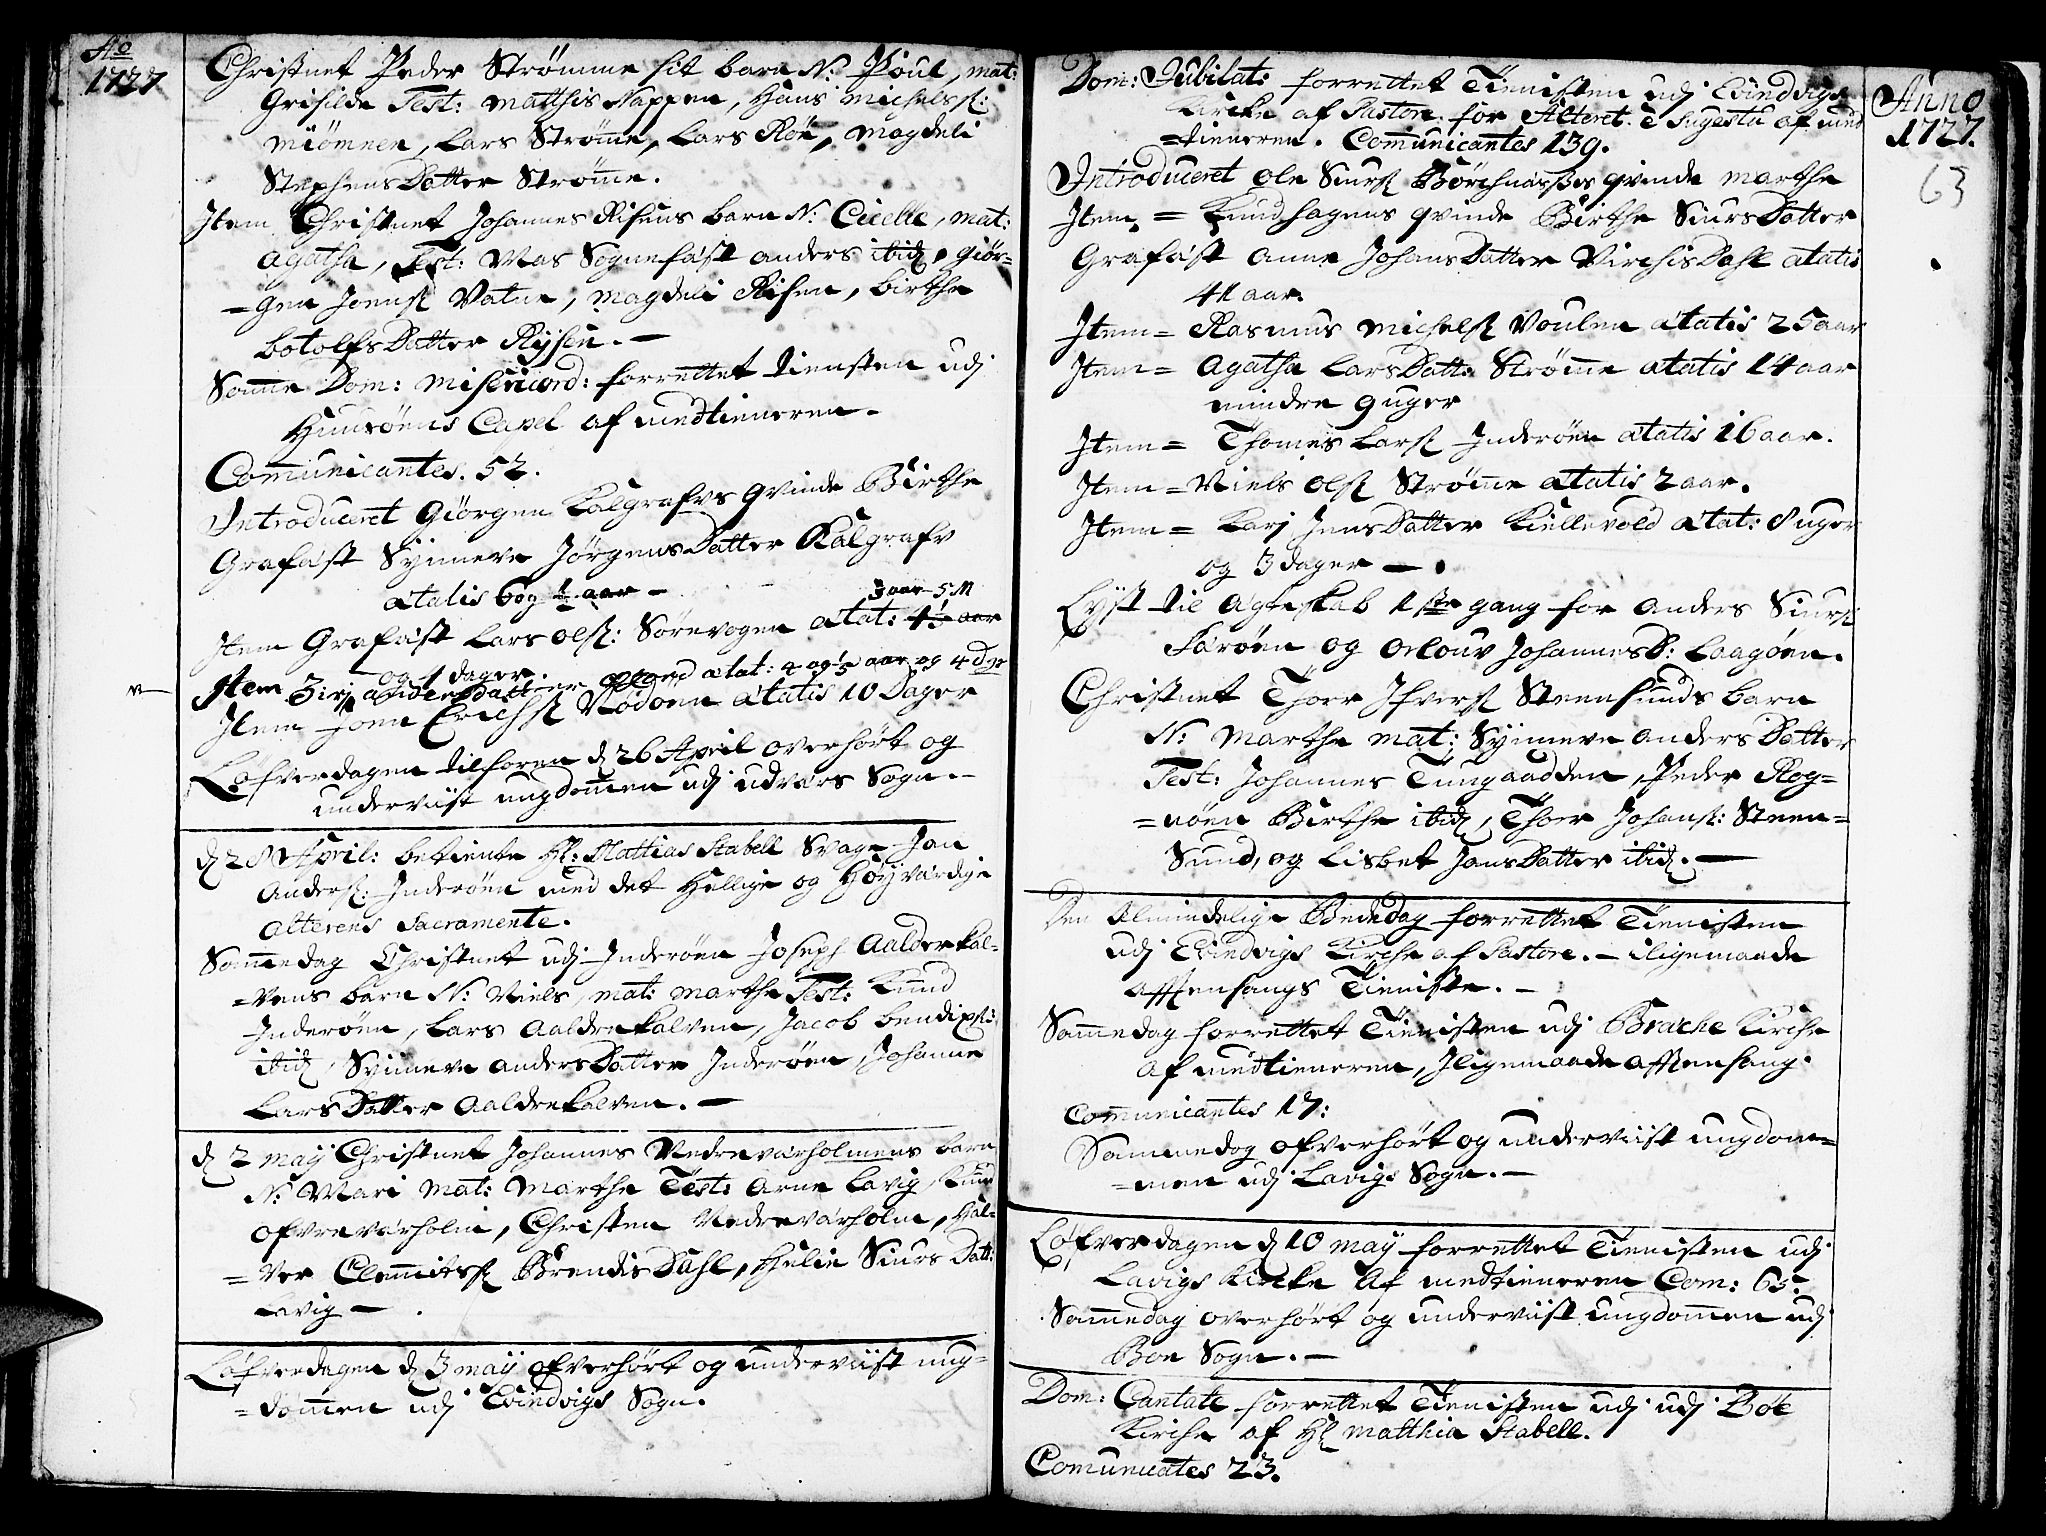 Ao
1727
Christnet Peder Strömme sit barn N: Poul, mat:
Grisilde Test: Matthis Nappen, Hans Michelsß:
Miömnen, Lars Ströme, Lars Röe, Magdeli
StephensDatter Ströme.
Item Christnet Johannes Risens barn N: Cicelle, mat:
Agatha, Test: Mas Sognefæst Anders ibid, Giör-
=gen Joensß Vatne, Magdeli Risen, Birthe
BotolfsDatter Rysen.
Same Dom: Misericord: forrettet tiensten udj
Huusöens Capel af medtieneren.
Comunicantes. 52.
Introduceret Giörgen Kalgrafvs qvinde Birthe
Grafæst Synneve JörgensDatter Kalgrafv
ætatis 6 og ½ aar
3 aar 5 M
Item Grafæst Lars Olsß: Sörevogen ætat: 4½ aar
og 1 dager.
Item Siri AndersDatter ætat: 4 og ½ aar og 4 dge
Item Joen Erichsß Nödöen ætatis 10 Dager
Löfverdagen tilforen d 26 April overhört og
underviist ungdomen udj udværs Sogn.
d 28 April: betiente Hl: Mathias Stabell Svage Jan
Andersß: Inderöen med det Hellige og Höyværdige
Alterens Sacramente.
Samedag Christnet udj Inderöen Joseph Aalderkal-
=vens barn N: Niels, mat: Marthe Test: Knud
Inderöen, Lars Aaldrekalven, Jacob Bendixß:
ibid, Synneve AndersDatter Inderöen, Johanne
LarsDatter Aaldrekalven.
d 2 May Christnet Johannes Nedreværholmens barn
N: Mari Mat: Marthe Test: Arne Lavig, Knud
Ofvreværholm, Christen Nedreværholm, Hal-
=vor Clemitsß BrendisDahl, Helie Siurs Datt:
Lavig
Löfverdagen d 3 May ofverhört og underviist ung-
=domen udj Evindvigs Sogn.
Dom: Jubilat: forrettet Tienisten udj Evindvigs
Kircke af Pastore for Alteret. è Sugestu af med
=tieneren. Comunicantes 139.
Introduceret Ole Siursß Börchnæsses qvinde Marthe
Item = Knud Hagens qvinde Birthe SiursDatter
Grafæst Anne JohansDatter VirchisDahl ætatis
41 aar.
Item = Rasmus Michelsß Voulen ætatis 25 aar
Item = Agatha LarsDatte Ströme ætatis 14 aar
mindre 9 uger
Item = Thomes Larsß Inderöen ætatis 16 aar.
Item = Niels Olsß Ströme ætatis 2 aar.
Item = Karj JensDatter Kiellevold ætat: 8 uger
og 3 dager
Lyst til Ægteskab 1ste gang for Anders Siursß
Færöen og Orlouv JohannesD: Laagöen.
Christnet Thoer Ifversß Steensunds barn
N: Marthe mat: Synneve AndersDatter
Test: Johannes Tungaadden, Peder Rog-
=nöen Birthe ibid, Thoer Johansß: Steen-
Sund, og Lisbet JansDatter ibid.
Den Almindelige Bededag forrettet Tienisten
udj Evindvigs Kirche af Pastore. iligemaade
Afftensangs Tieniste.
Samedag forrettet Tienisten udj Bræche Kirche
af medtieneren, Iligemaade Afftensang.
Comunicantes 17:
Sammedag ofverhört og underviist ungdom-
=men udj Lavigs Sogn.
Löfverdagen d 10 May forrettet Tienisten udj
Lavigs Kircke af medtieneren Com: 65.
Samedag overhört og underviist ungdomen udj
Böe Sogn.
Dom: Cantate forrettet Tienisten udj udj Böe
Kirche af Hl Matthia Stabell.
Comunicates 23.
Anno
1727.
63